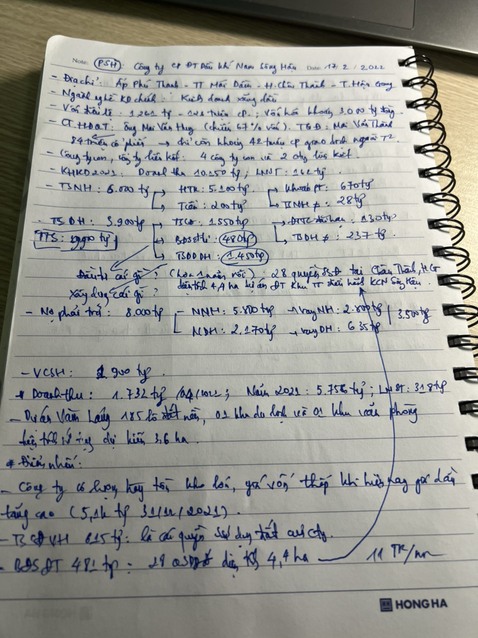 Note: PSH Công ty CP ĐT Dầu khí Nam Sông Hậu Date: 17/2/2022
- Địa chỉ: Ấp Phú Thạnh - TT Mái Dầm - H. Châu Thành - T. Hậu Giang
- Ngành nghề KD chính: Kinh doanh xăng dầu
- Vốn điều lệ: 1.262 tỷ cp; Vốn hóa khoảng 3.000 tỷ đồng
- CT.HĐQT: Ông Mai Văn Huy (chiếm 67% vốn). TGĐ: Mai Văn Thành
84 triệu cổ phiếu → chỉ còn khoảng 42 triệu cp giao dịch ngoài T²
- Công ty con, công ty liên kết: 4 công ty con và 2 cty liên kết.
- KHKD 2021: Doanh thu 10.150 tỷ; LNST: 162 tỷ
- TSNH: 6.000 tỷ HTK: 5.100 tỷ Khoản PT: 670 tỷ
Tiền: 200 tỷ TSNH ≠: 28 tỷ
- TSDH: 3.900 tỷ TSCĐ: 1550 tỷ ĐTTC dài hạn: 130 tỷ
TTS: 9900 tỷ BĐSĐT: 480 tỷ TSDH ≠: 237 tỷ
TSDDDH: 1.450 tỷ
Đầu tư cái gì? : 28 quyền SDĐ tại Châu Thành, HG
Xây dựng cái gì? diện tích 4,4 ha dự án ĐT Khu KCN Sông Hậu.
- Nợ phải trả: 8.000 tỷ NNH: 5.800 tỷ → vay NH: 2.800 tỷ 3.500 tỷ
NDH: 2.170 tỷ → vay DH: 635 tỷ
- VCSH: 1.900 tỷ.
* Doanh thu: 1.732 tỷ /Q4/2021; Năm 2021: 5.756 tỷ; LNST: 318 tỷ
- Dự án Vàm Láng 185 lô đất nền, 01 khu du lịch và 01 khu văn phòng
dự kiến 3,6 ha.
* Điểm nhấn:
- Công ty có lượng hàng tồn kho lớn, giá vốn thấp khi hiện nay giá dầu
tăng cao (5,1k tỷ 31/12/2021).
- TSCĐVH 815 tỷ: là các quyền sử dụng đất của cty.
- BĐSĐT 481 tỷ = 28 QSDĐ diện tích 4,4 ha 11 TR/m²
HONG HA